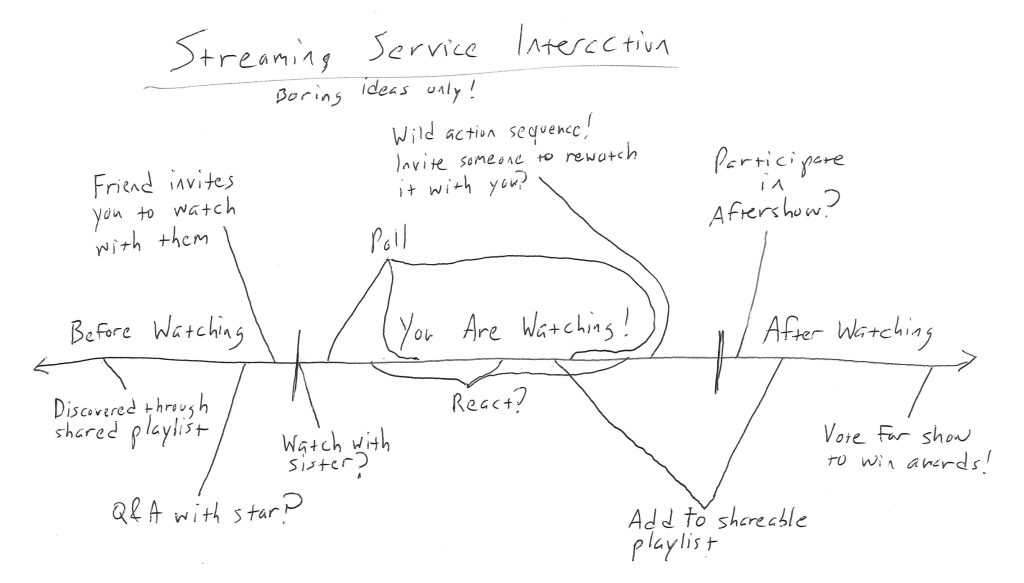 Streaming Service Interaction
Boring ideas only!
Wild action sequence!
Invite someone to rewatch
it with you?
Participate
in
Aftershow?
Friend invites
you to watch
with them
Poll
Before Watching
You Are Watching!
After Watching
Discovered through
shared playlist
React?
Watch with
sister?
Vote for show
to win awards!
Q&A with star?
Add to shareable
playlist